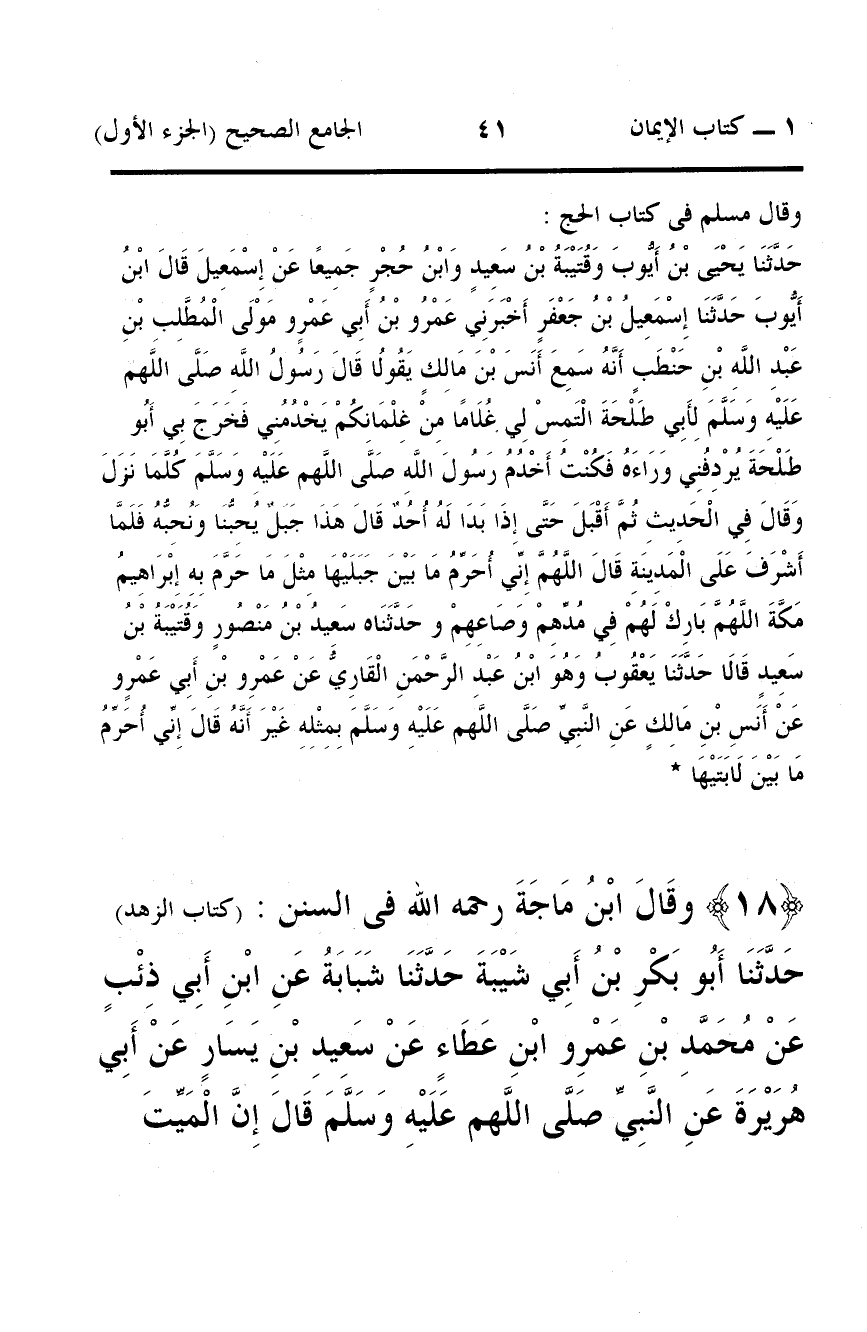 ١ ــ كتاب الإيمان ٤١ الجامع الصحيح (الجزء الأول)
وقال مسلم فى كتاب الحج :
حَدَّثَنَا يَحْيَى بْنُ أَيُّوبَ وَقُتَيْبَةُ بْنُ سَعِيدٍ وَابْنُ حُجْرٍ جَمِيعًا عَنْ إِسْمَعِيلَ قَالَ ابْنُ
أَيُّوبَ حَدَّثَنَا إِسْمَعِيلُ بْنُ جَعْفَرٍ أَخْبَرَنِي عَمْرُو بْنُ أَبِي عَمْرٍو مَوْلَى الْمُطَّلِبِ بْنِ
عَبْدِ اللَّهِ بْنِ حَنْطَبٍ أَنَّهُ سَمِعَ أَنَسَ بْنَ مَالِكٍ يَقُولُا قَالَ رَسُولُ اللَّهِ صَلَّى اللهم
عَلَيْهِ وَسَلَّمَ لِأَبِي طَلْحَةَ الْتَمِسْ لِي غُلَامًا مِنْ غِلْمَانِكُمْ يَخْدُمُنِي فَخَرَجَ بِي أَبُو
طَلْحَةَ يُرْدِفُنِي وَرَاءَهُ فَكُنْتُ أَخْدُمُ رَسُولَ اللَّهِ صَلَّى اللهم عَلَيْهِ وَسَلَّمَ كُلَّمَا نَزَلَ
وَقَالَ فِي الْحَدِيثِ ثُمَّ أَقْبَلَ حَتَّى إِذَا بَدَا لَهُ أُحُدٌ قَالَ هَذَا جَبَلٌ يُحِبُّنَا وَنُحِبُّهُ فَلَمَّا
أَشْرَفَ عَلَى الْمَدِينَةِ قَالَ اللَّهُمَّ إِنِّي أُحَرِّمُ مَا بَيْنَ جَبَلَيْهَا مِثْلَ مَا حَرَّمَ بِهِ إِبْرَاهِيمُ
مَكَّةَ اللَّهُمَّ بَارِكْ لَهُمْ فِي مُدِّهِمْ وَصَاعِهِمْ و حَدَّثَنَاه سَعِيدُ بْنُ مَنْصُورٍ وَقُتَيْبَةُ بْنُ
سَعِيدٍ قَالَا حَدَّثَنَا يَعْقُوبُ وَهُوَ ابْنُ عَبْدِ الرَّحْمَنِ الْقَارِيُّ عَنْ عَمْرِو بْنِ أَبِي عَمْرٍو
عَنْ أَنَسِ بْنِ مَالِكٍ عَنِ النَّبِيِّ صَلَّى اللهم عَلَيْهِ وَسَلَّمَ بِمِثْلِهِ غَيْرَ أَنَّهُ قَالَ إِنِّي أُحَرِّمُ
مَا بَيْنَ لَابَتَيْهَا *
﴿١٨﴾ وقَالَ ابْنُ مَاجَةَ رحمه الله فى السنن : (كتاب الزهد)
حَدَّثَنَا أَبُو بَكْرِ بْنُ أَبِي شَيْبَةَ حَدَّثَنَا شَبَابَةُ عَنِ ابْنِ أَبِي ذِئْبٍ
عَنْ مُحَمَّدِ بْنِ عَمْرِو ابْنِ عَطَاءٍ عَنْ سَعِيدِ بْنِ يَسَارٍ عَنْ أَبِي
هُرَيْرَةَ عَنِ النَّبِيِّ صَلَّى اللهم عَلَيْهِ وَسَلَّمَ قَالَ إِنَّ الْمَيِّتَ